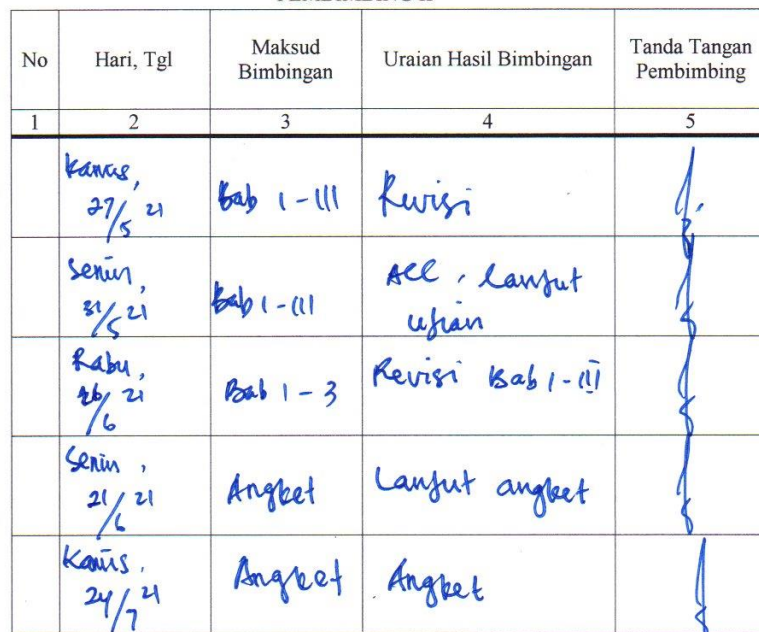 No Hari, Tgl Maksud Bimbingan Uraian Hasil Bimbingan Tanda Tangan Pembimbing
1 2 3 4 5
Kamis, 27/5 21 Bab I - III Revisi
Senin, 31/5 21 Bab I - III ACC, lanjut ujian
Rabu, /6 21 Bab 1 - 3 Revisi Bab I - III
Senin, 21/6 21 Angket Lanjut angket
Kamis, 24/7 21 Angket Angket